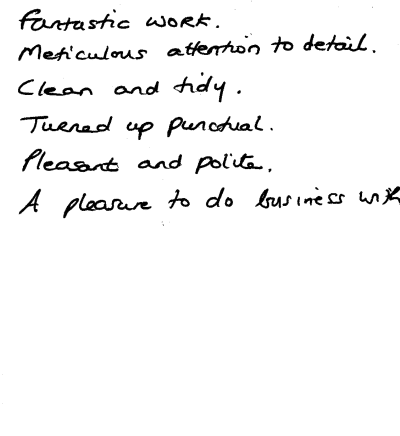 Fantastic work.
Meticulous attention to detail.
Clean and tidy.
Turned up punctual.
Pleasant and polite.
A pleasure to do business with